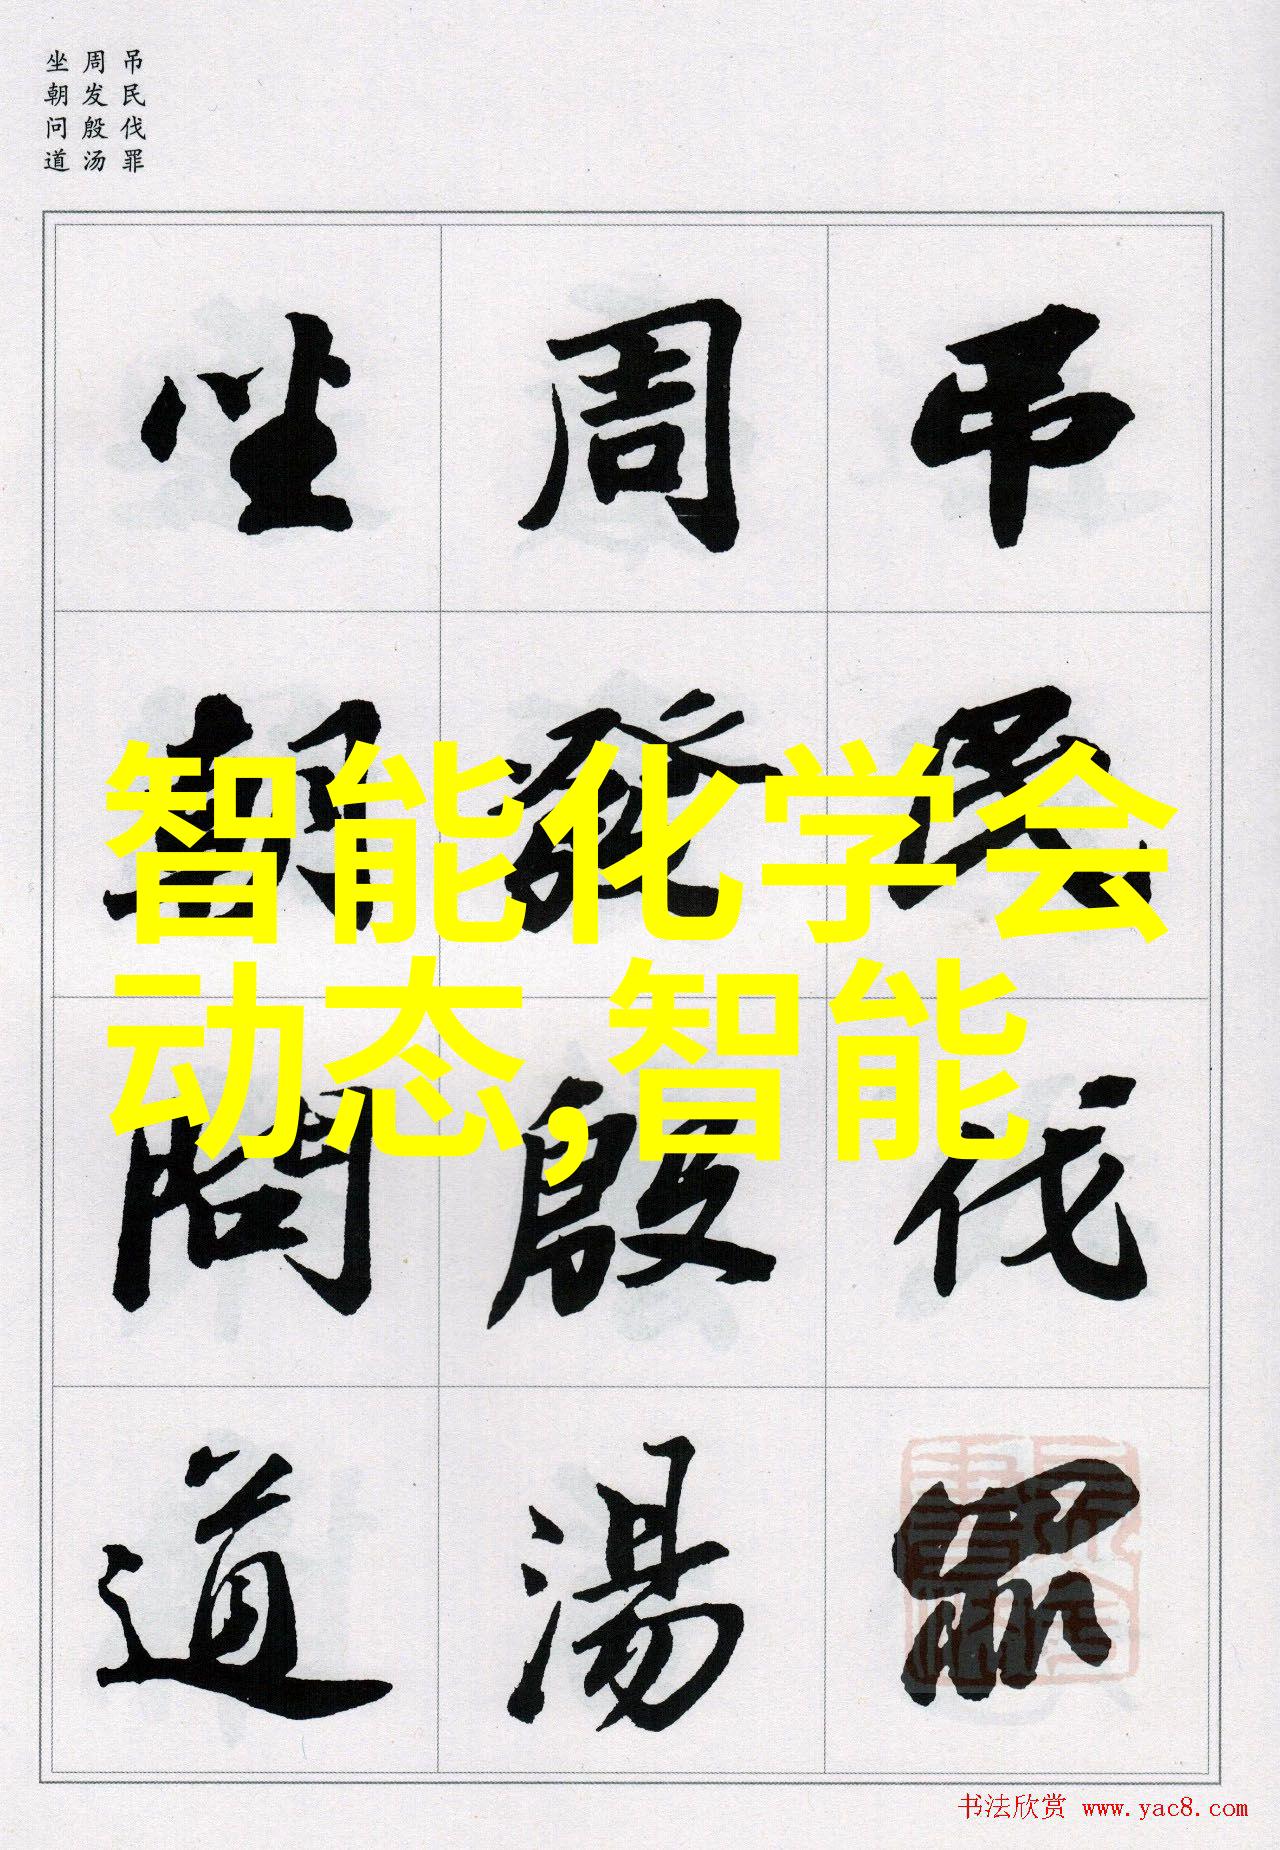 吊民伐罪
周发殷汤
坐朝问道
吊民伐罪
周發殷湯
坐朝問道
智能化学会
动态,智能
书法欣赏 www.yac8.com